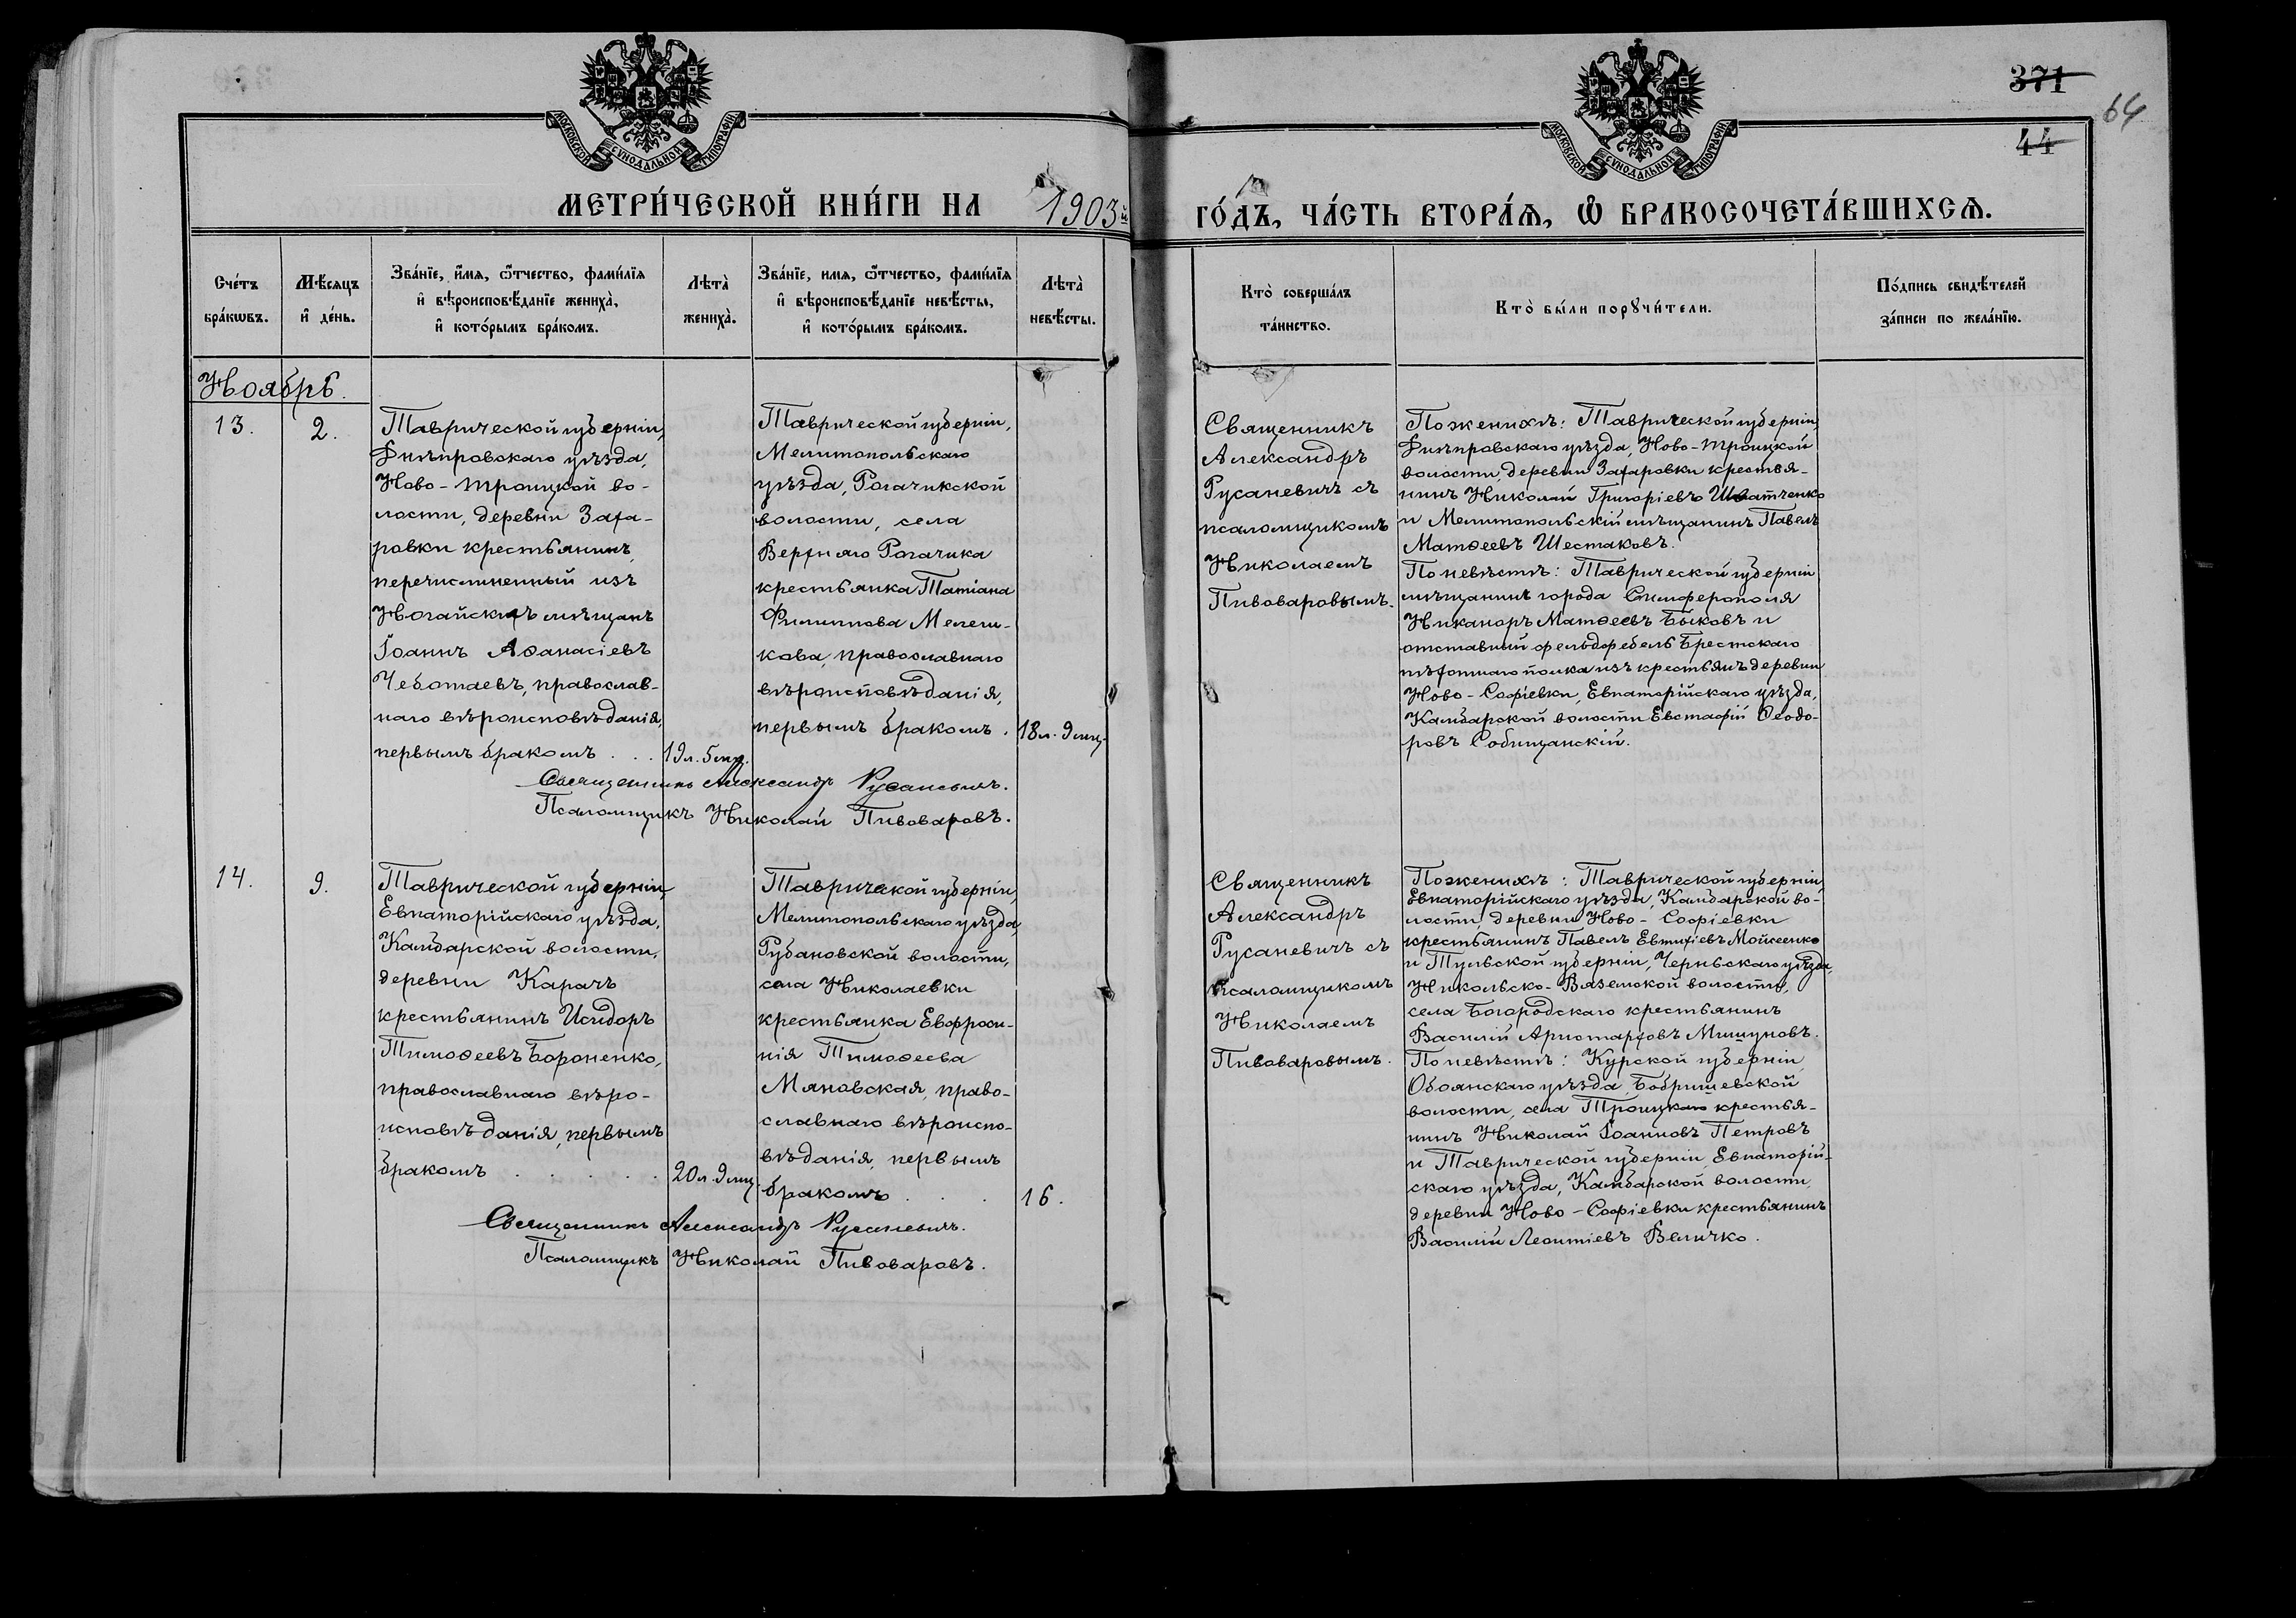 371
64
44
МОСКОВСКОЙ СУНОДАЛЬНОЙ ТИПОГРАФІИ
МОСКОВСКОЙ СУНОДАЛЬНОЙ ТИПОГРАФІИ
МЕТРИ́ЧЕСКОЙ КНИ́ГИ НА 1903й
ГО́ДЪ, ЧА́СТЬ ВТОРА́Ѧ, Ѽ БРАКОСОЧЕТА́ВШИХСѦ.
Сче́тъ
бра́кѡвъ.
Мѣ́сяцъ
и҆ де́нь.
Зва́нїе, и҆́мѧ, ѻ҆́тчество, фами́лїѧ
и҆ вѣроисповѣ́данїе жениха̀,
и҆ кото́рымъ бра́комъ.
Лѣта̀
жениха̀.
Зва́нїе, имѧ, ѻ҆́тчество, фами́лїѧ
и҆ вѣроисповѣ́данїе невѣ́сты,
и҆ кото́рымъ бра́комъ.
Лѣта̀
невѣ́сты.
Кто̀ соверша́лъ
та́инство.
Кто̀ бы́ли порꙋчи́тели.
По́дпись свидѣ́телей
за́писи по жела́нїю.
Ноябрь.
13.
2.
Таврической губерніи,
Днѣпровскаго уѣзда,
Ново-Троицкой во-
лости, деревни Заха-
ровки крестьянинъ,
перечисленный изъ
Ногайскихъ мѣщанъ
Іоаннъ Аѳанасіевъ
Чеботаевъ, православ-
наго вѣроисповѣданія,
первымъ бракомъ . . .
19 л. 5 мц.
Таврической губерніи,
Мелитопольскаго
уѣзда, Рогачикской
волости, села
Верхняго Рогачика
крестьянка Татіана
Филиппова Мелеш-
кова, православнаго
вѣроисповѣданія,
первымъ бракомъ .
18 л. 9 мц.
Священникъ Александръ Русаневичъ.
Псаломщикъ Николай Пивоваровъ.
Священникъ
Александръ
Русаневичъ съ
псаломщикомъ
Николаемъ
Пивоваровымъ.
По женихѣ: Таврической губерніи,
Днѣпровскаго уѣзда, Ново-Троицкой
волости, деревни Захаровки крестья-
нинъ Николай Григоріевъ
и Мелитопольскій мѣщанинъ Павелъ
Матѳеевъ Шестаковъ.
По невѣстѣ: Таврической губерніи
мѣщанинъ города Симферополя
Никаноръ Матѳеевъ Быковъ и
отставной фельдфебель Брестскаго
пѣхотнаго полка изъ крестьянъ деревни
Ново-Софіевки, Евпаторійскаго уѣзда,
Камбарской волости Евстафій Ѳеодо-
ровъ Собищанскій.
14.
9.
Таврической губерніи,
Евпаторійскаго уѣзда,
Камбарской волости,
деревни Карачъ
крестьянинъ Исидоръ
Тимоѳеевъ Бороненко,
православнаго вѣро-
исповѣданія, первымъ
бракомъ . . . . .
20 л. 9 мц.
Таврической губерніи,
Мелитопольскаго уѣзда,
Рубановской волости,
села Николаевки
крестьянка Евфроси-
нія Тимоѳеева
Мановская, право-
славнаго вѣроиспо-
вѣданія, первымъ
бракомъ . . .
16.
Священникъ Александръ Русаневичъ.
Псаломщикъ Николай Пивоваровъ.
Священникъ
Александръ
Русаневичъ съ
псаломщикомъ
Николаемъ
Пивоваровымъ.
По женихѣ: Таврической губерніи,
Евпаторійскаго уѣзда, Камбарской во-
лости, деревни Ново-Софіевки
крестьянинъ Павелъ Евтихіевъ Мойсеенко
и Тульской губерніи, Чернскаго уѣзда,
Никольско-Вяземской волости,
села Богородскаго крестьянинъ
Василій Аристарховъ Мишуновъ.
По невѣстѣ: Курской губерніи,
Обоянскаго уѣзда, Бобришевской
волости, села Троицкаго крестья-
нинъ Николай Іоанновъ Петровъ
и Таврической губерніи, Евпаторій-
скаго уѣзда, Камбарской волости,
деревни Ново-Софіевки крестьянинъ
Василій Леонтіевъ Величко.